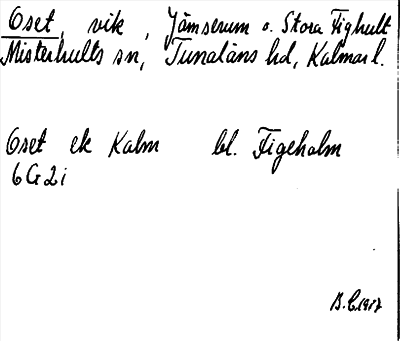 Oset, vik, Jämserum o. Stora Fighult
Misterhults sn, Tunaläns hd, Kalmar l.
Oset ek Kalm bl. Figeholm
6G2i